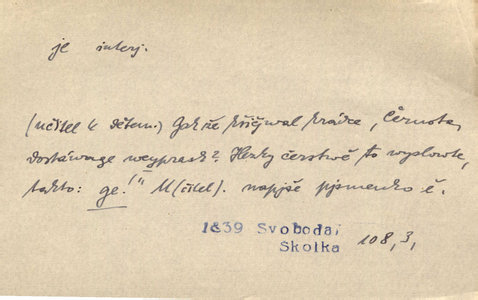 je interj.
(učitel k dětem.) Gakže křičjwal krádce, Černota,
dostáwage weyprask? Hezky čerstwě to wyslowte,
takto: ge!“ U(čitel). napjše pjsmenko ě.
1839 Svoboda,
Školka 108,3,